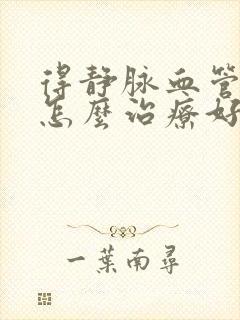 得静脉血管
怎麼治療好
一葉南尋